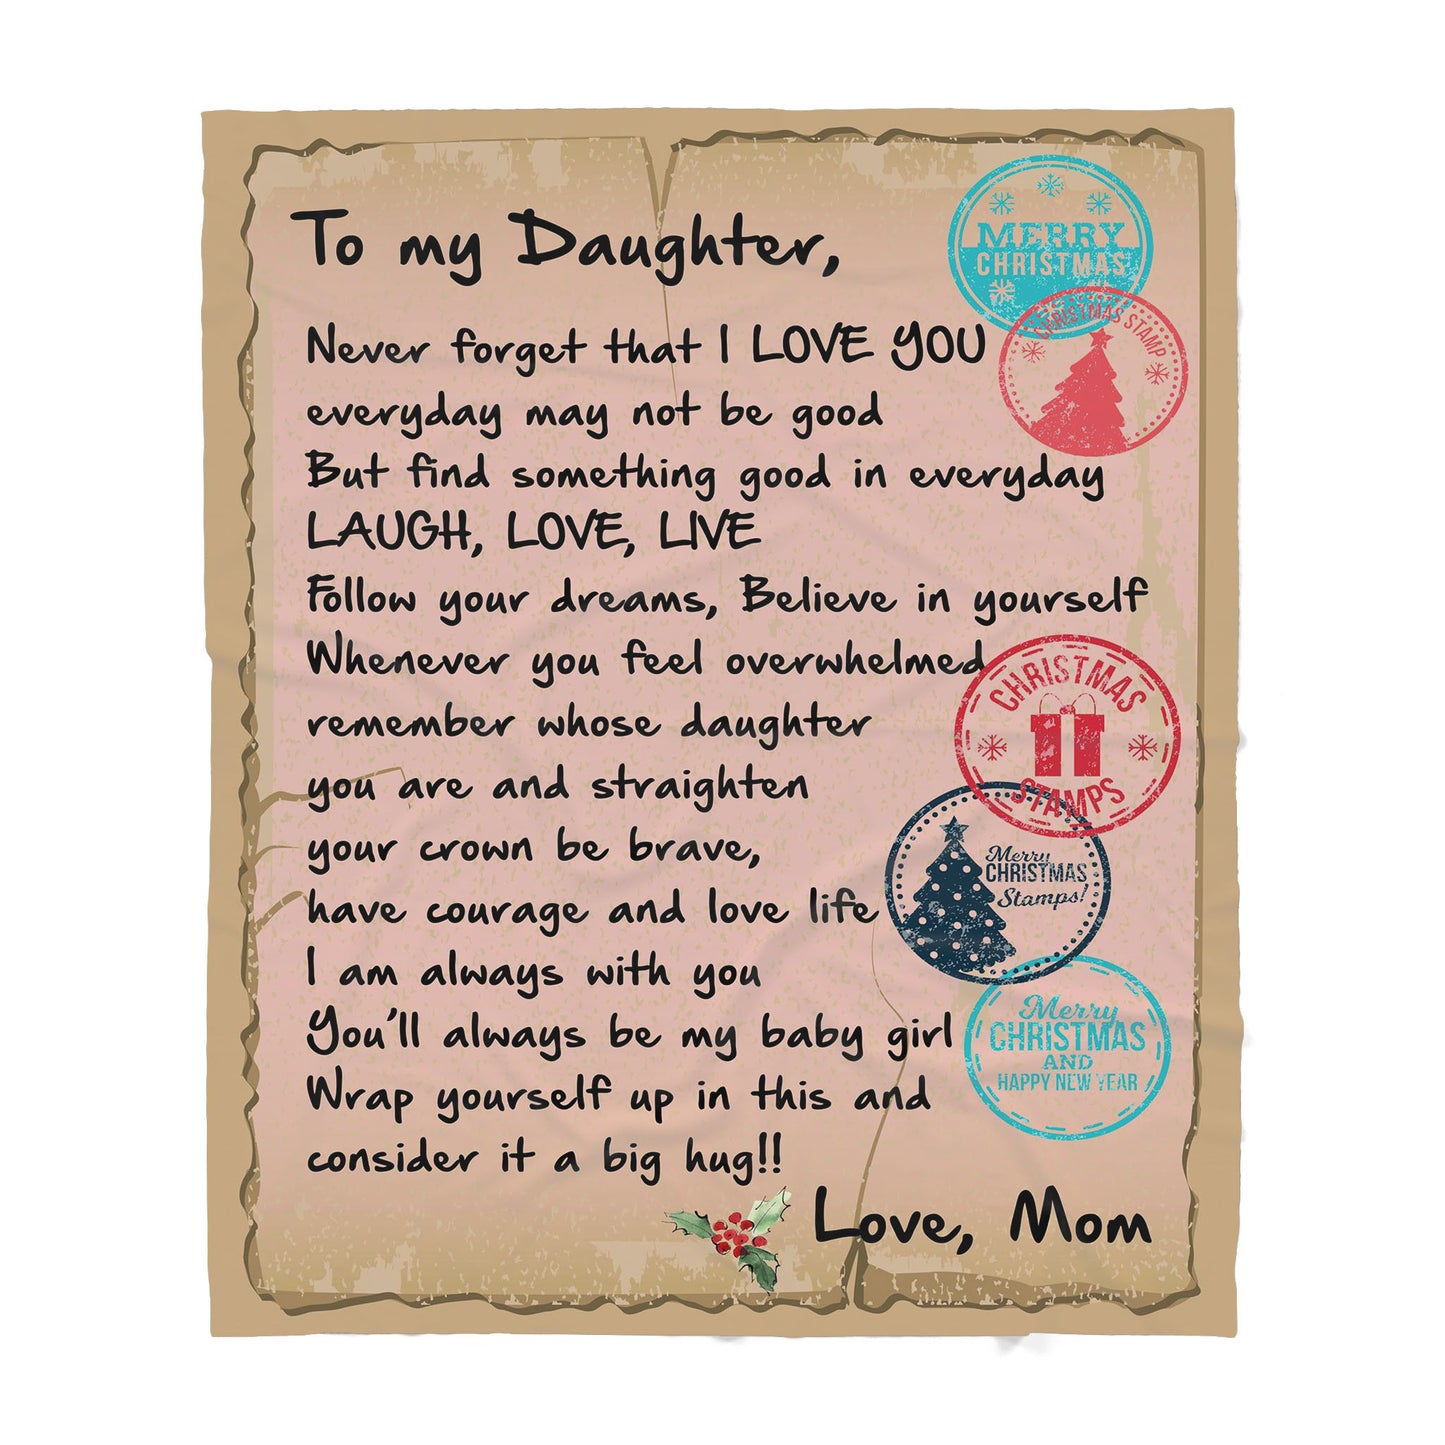 To my Daughter,
MERRY
CHRISTMAS
CHRISTMAS STAMP
Never forget that I LOVE YOU
everyday may not be good
But find something good in everyday
LAUGH, LOVE, LIVE
Follow your dreams, Believe in yourself
Whenever you feel overwhelmed
remember whose daughter
you are and straighten
your crown be brave,
have courage and love life
I am always with you
You'll always be my baby girl
Wrap yourself up in this and
consider it a big hug!!
Love, Mom
CHRISTMAS
STAMPS
Merry
CHRISTMAS
Stamps!
Merry
CHRISTMAS
AND
HAPPY NEW YEAR